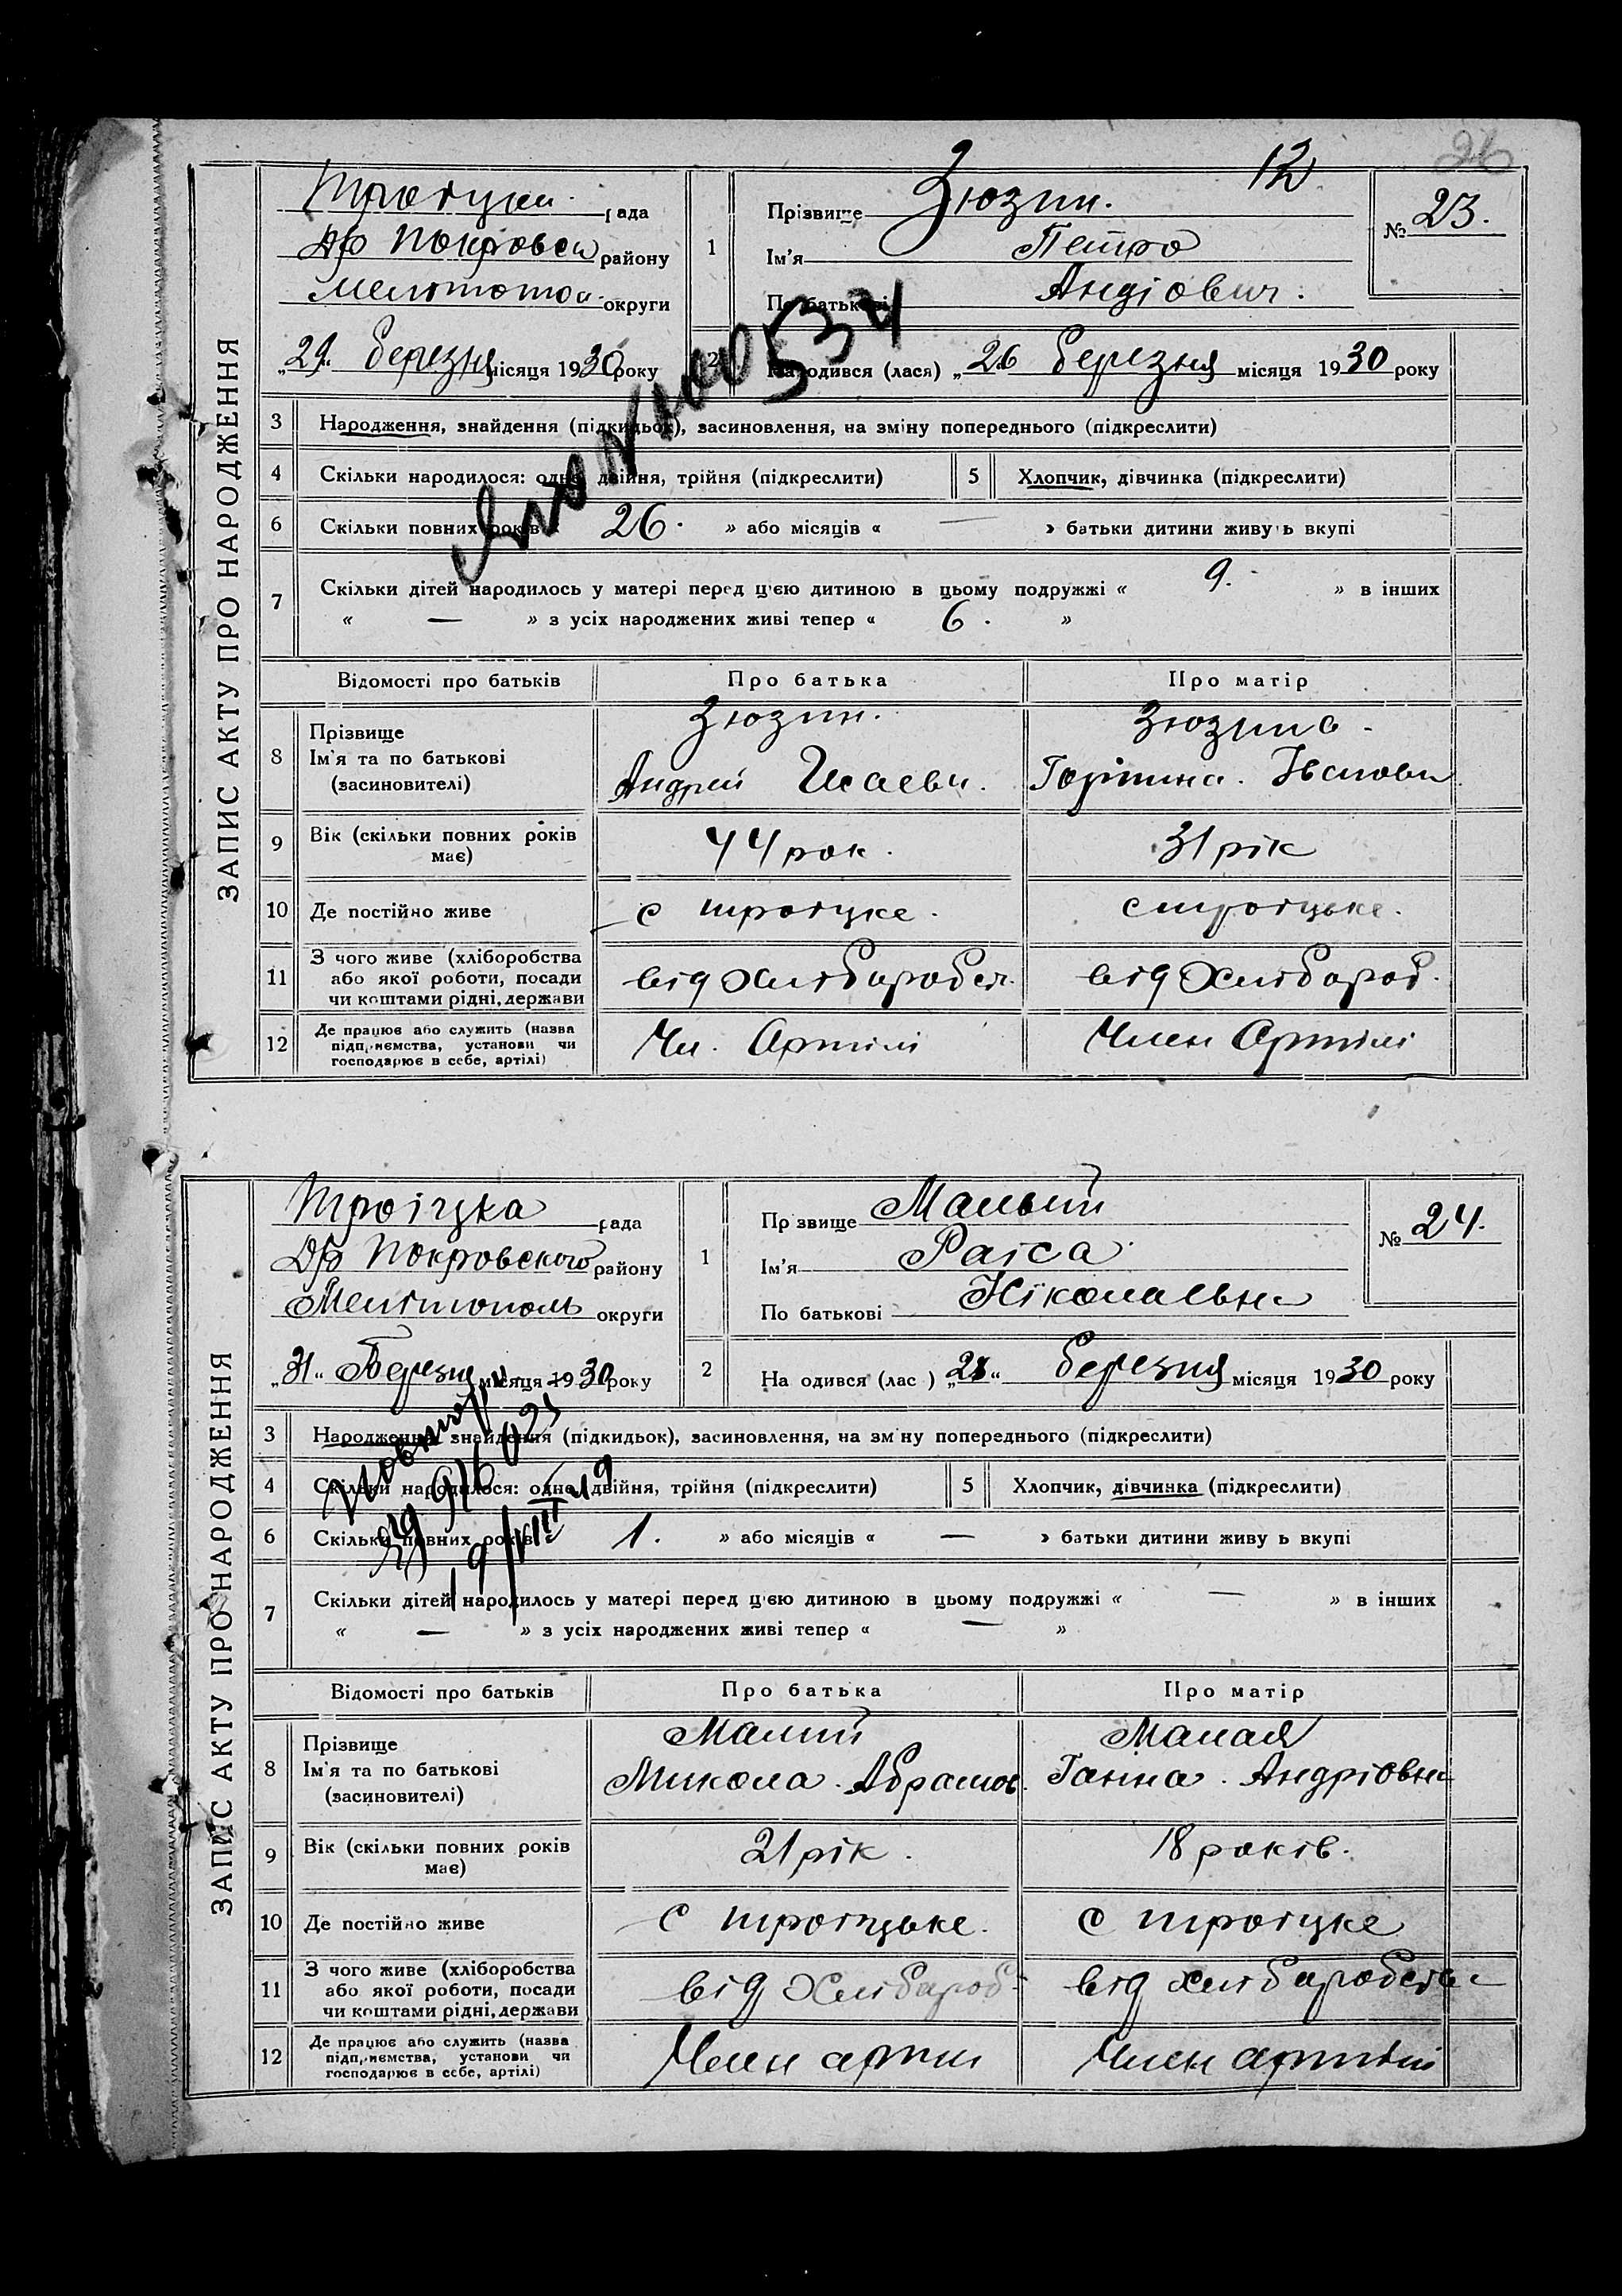 26
12
ЗАПИС АКТУ ПРО НАРОДЖЕННЯ
Троіцкая рада
Др Покровськ району
Мелітопол округи
„29“ березня місяця 1930 року
1
Прізвище Зюзин.
Ім'я Петро
По батькові Андіович.
№ 23.
2
Народився (лася) „26 березня місяця 1930 року
534
3 Народження, знайдення (підкидьок), засиновлення, на зміну попереднього (підкреслити)
4 Скільки народилося: одне, двійня, трійня (підкреслити) 5 Хлопчик, дівчинка (підкреслити)
6 Скільки повних років 26. » або місяців « — » батьки дитини живуть вкупі
7 Скільки дітей народилось у матері перед ц'єю дитиною в цьому подружжі « 9. » в інших
« — » з усіх народжених живі тепер « 6. »
Відомості про батьків Про батька Про матір
8 Прізвище Зюзин. Зюзина.
Ім'я та по батькові Андрій Исаеви. Горпина. Іванови
(засиновителі)
9 Вік (скільки повних років має) 44 рок. 31 рік
10 Де постійно живе с троіцке. с троіцьке.
11 З чого живе (хліборобства
або якої роботи, посади від Хлібаробст. від Хлібороб.
чи коштами рідні, держави
12 Де працює або служить (назва
підприємства, установи чи Чл. Артілі Член Артілі
господарює в себе, артілі)
ЗАПИС АКТУ ПРО НАРОДЖЕННЯ
Троіцка рада
Др Покровского району
Мелітополь округи
„31“ Березня місяця 1930 року
1
Прзвище Малый
Ім'я Раіса
По батькові Ніколаевна
№ 24.
2
На одився (лас ) „28“ березня місяця 1930 року
Повтор
3 Народження, знайдення (підкидьок), засиновлення, на зміну попереднього (підкреслити)
4 Скільки народилося: одне, двійня, трійня (підкреслити) 5 Хлопчик, дівчинка (підкреслити)
6 Скільки повних років 1. » або місяців « — » батьки дитини живу ь вкупі
7 Скільки дітей народилось у матері перед ц'єю дитиною в цьому подружжі « — » в інших
« — » з усіх народжених живі тепер « — »
Відомості про батьків Про батька Про матір
8 Прізвище Малий Малая
Ім'я та по батькові Микола. Абрамов. Ганна. Андріовна
(засиновителі)
9 Вік (скільки повних років має) 21 рік. 18 років.
10 Де постійно живе с троіцьке. с троіцке
11 З чого живе (хліборобства
або якої роботи, посади від Хлібароб. від хлібаробства
чи коштами рідні, держави
12 Де працює або служить (назва
підприємства, установи чи Член артіл Член артілі
господарює в себе, артілі)